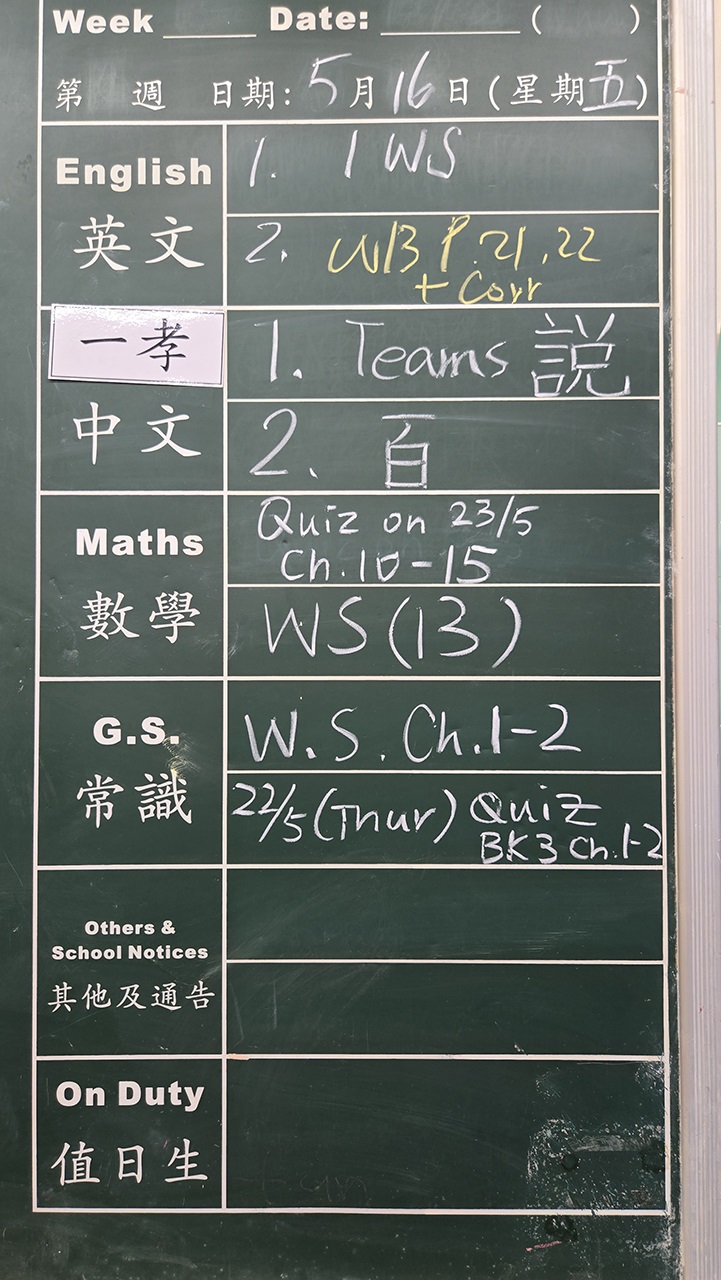 Week ______ Date: _________ (      )
第 週 日期: 5月16日(星期五)
English
英文
1. 1 WS
2. WB P.21,22
+ Corr
一孝
中文
1. Teams 説
2. 百
Maths
數學
Quiz on 23/5
Ch.10-15
WS(13)
G.S.
常識
W.S. Ch.1-2
22/5(Thur) Quiz
BK3 Ch.1-2
Others &
School Notices
其他及通告
On Duty
值日生